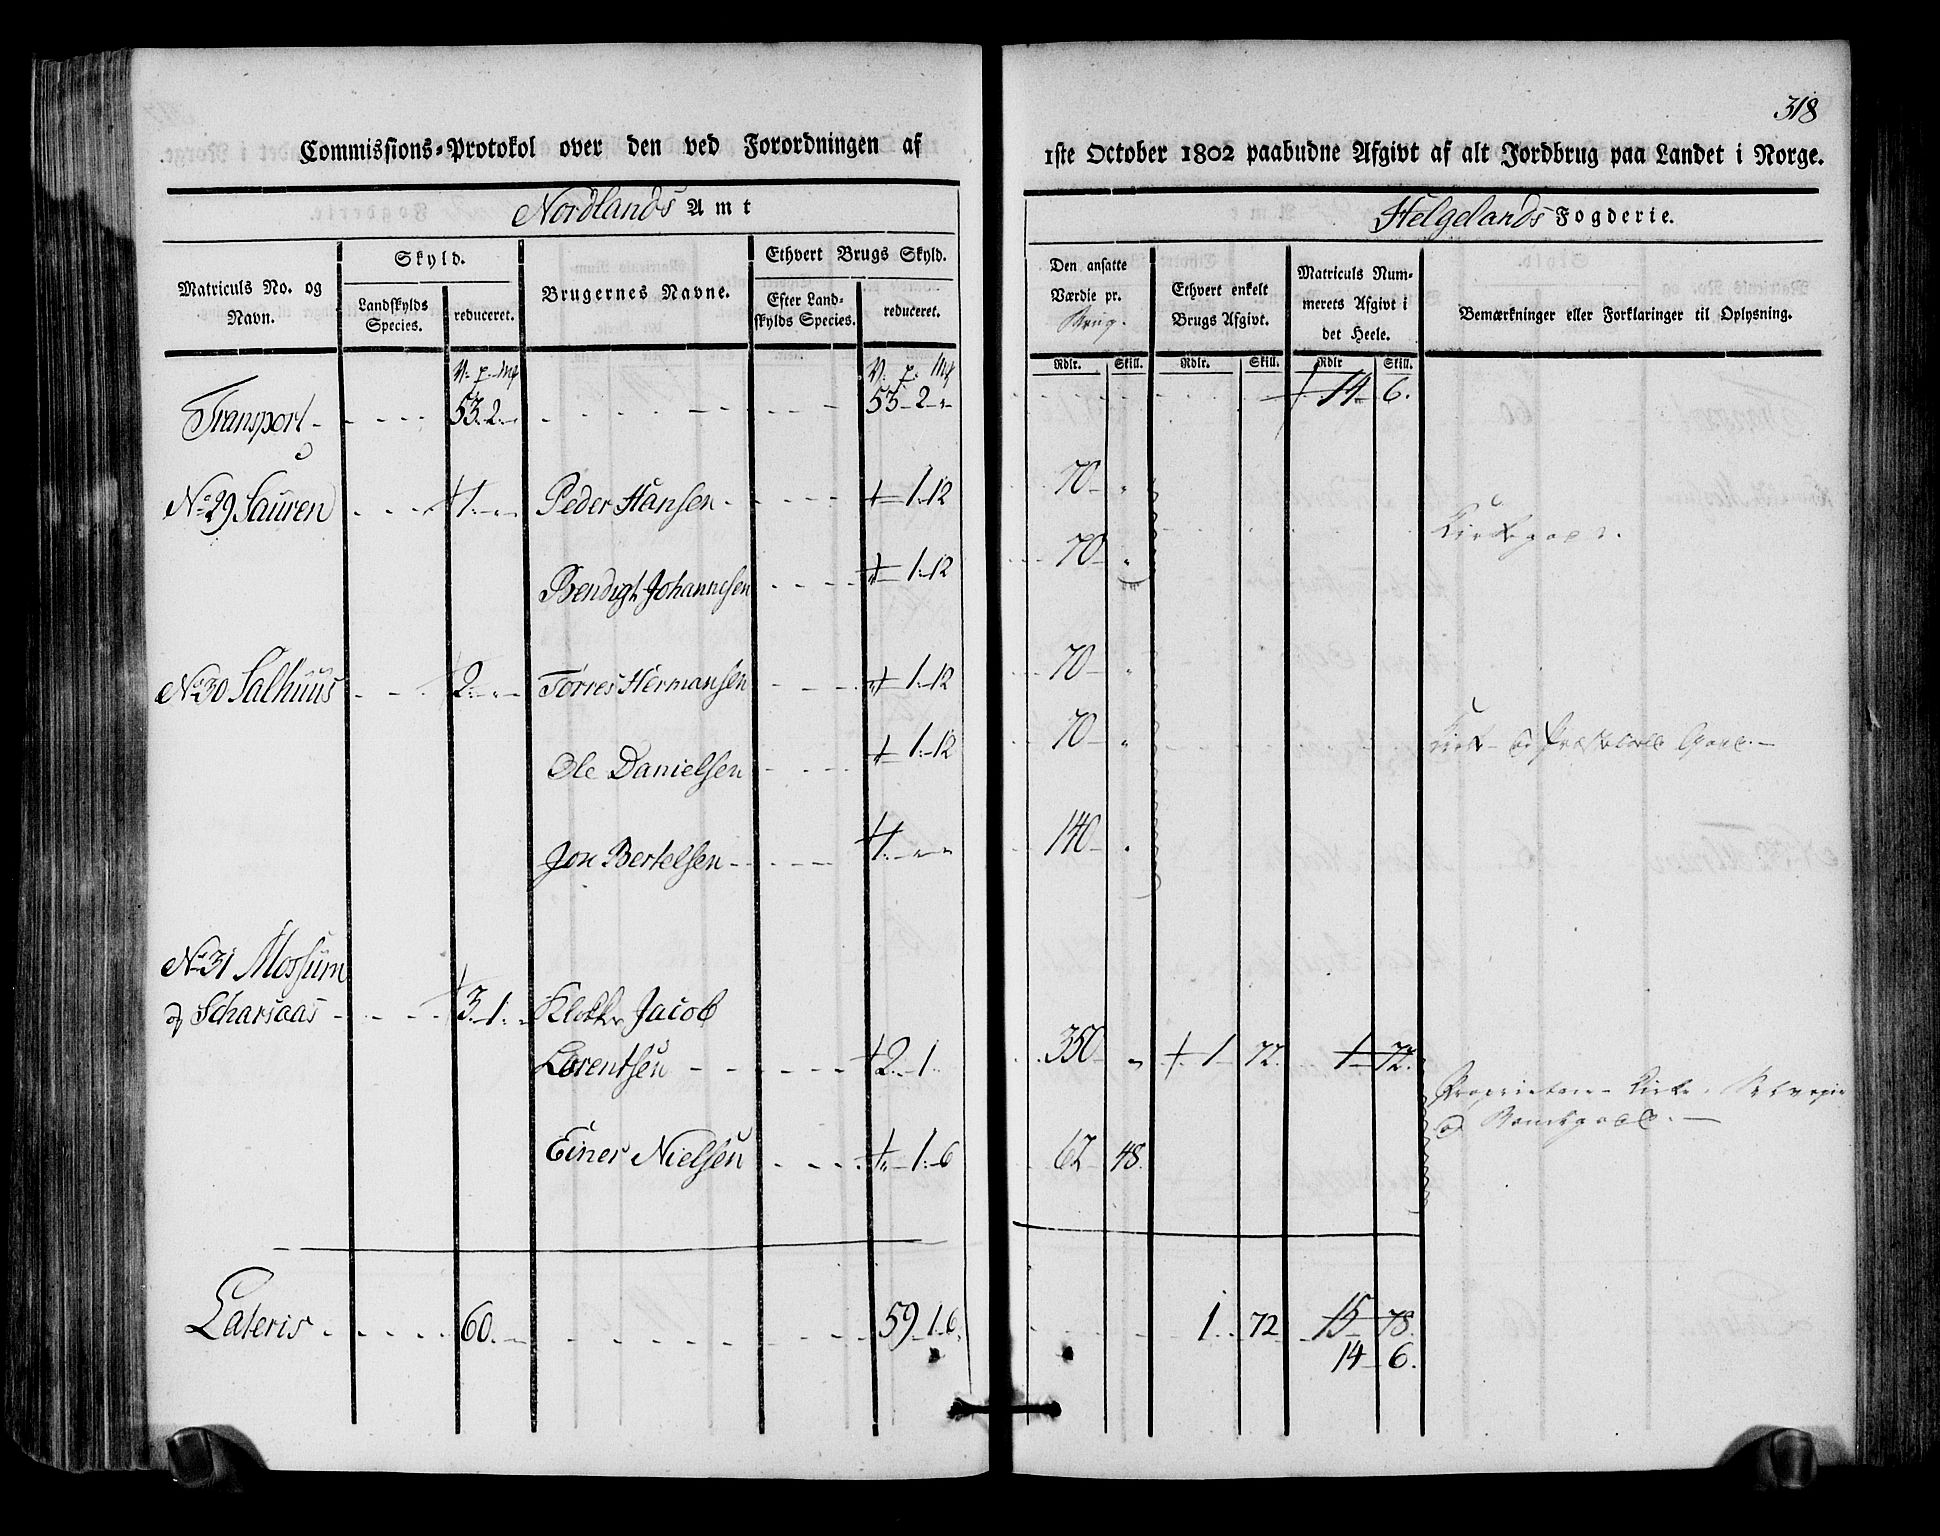 318
Commissions-Protokol over den ved Forordningen af
1ste October 1802 paabudne Afgivt af alt Jordbrug paa Landet i Norge.
Nordlands Amt
Helgelands Fogderie.
Matriculs No. og Navn.
Skyld.
Landskylds Species.
reduceret.
Brugernes Navne.
Ethvert Brugs Skyld.
Efter Landskylds Species.
reduceret.
Den ansatte Værdie pr. Brug.
Ethvert enkelt Brugs Afgivt.
Matriculs Nummerets Afgivt i det Heele.
Bemærkninger eller Forklaringer til Oplysning.
Rdlr. Skill. Rdlr. Skill. Rdlr Skill.
V. p. Mk V. p. Mk
Transport - 53. 2. - 53 - 2 - 14 - 6.
No 29 Sauren 1. Peder Hansen 1. 12 70
Kirkegods.
Bendigt Johannesen 1. 12 70
No 30 Salhuus 2. Torres Hermansen 1. 12 70
Ole Danielsen 1. 12 70
Jon Bertelsen 1. 140
No 31 Mossum
og Scharsaas 3. 1. Klokker Jacob
Lorentsen 2. 1. 350 1 72. 1 72.
Proprietair- Kirke-
og Bondegods.
Einer Nielsen 1. 6 62 48.
Lateris 60. 59 1. 6. 1. 72 15 78.
14 6.